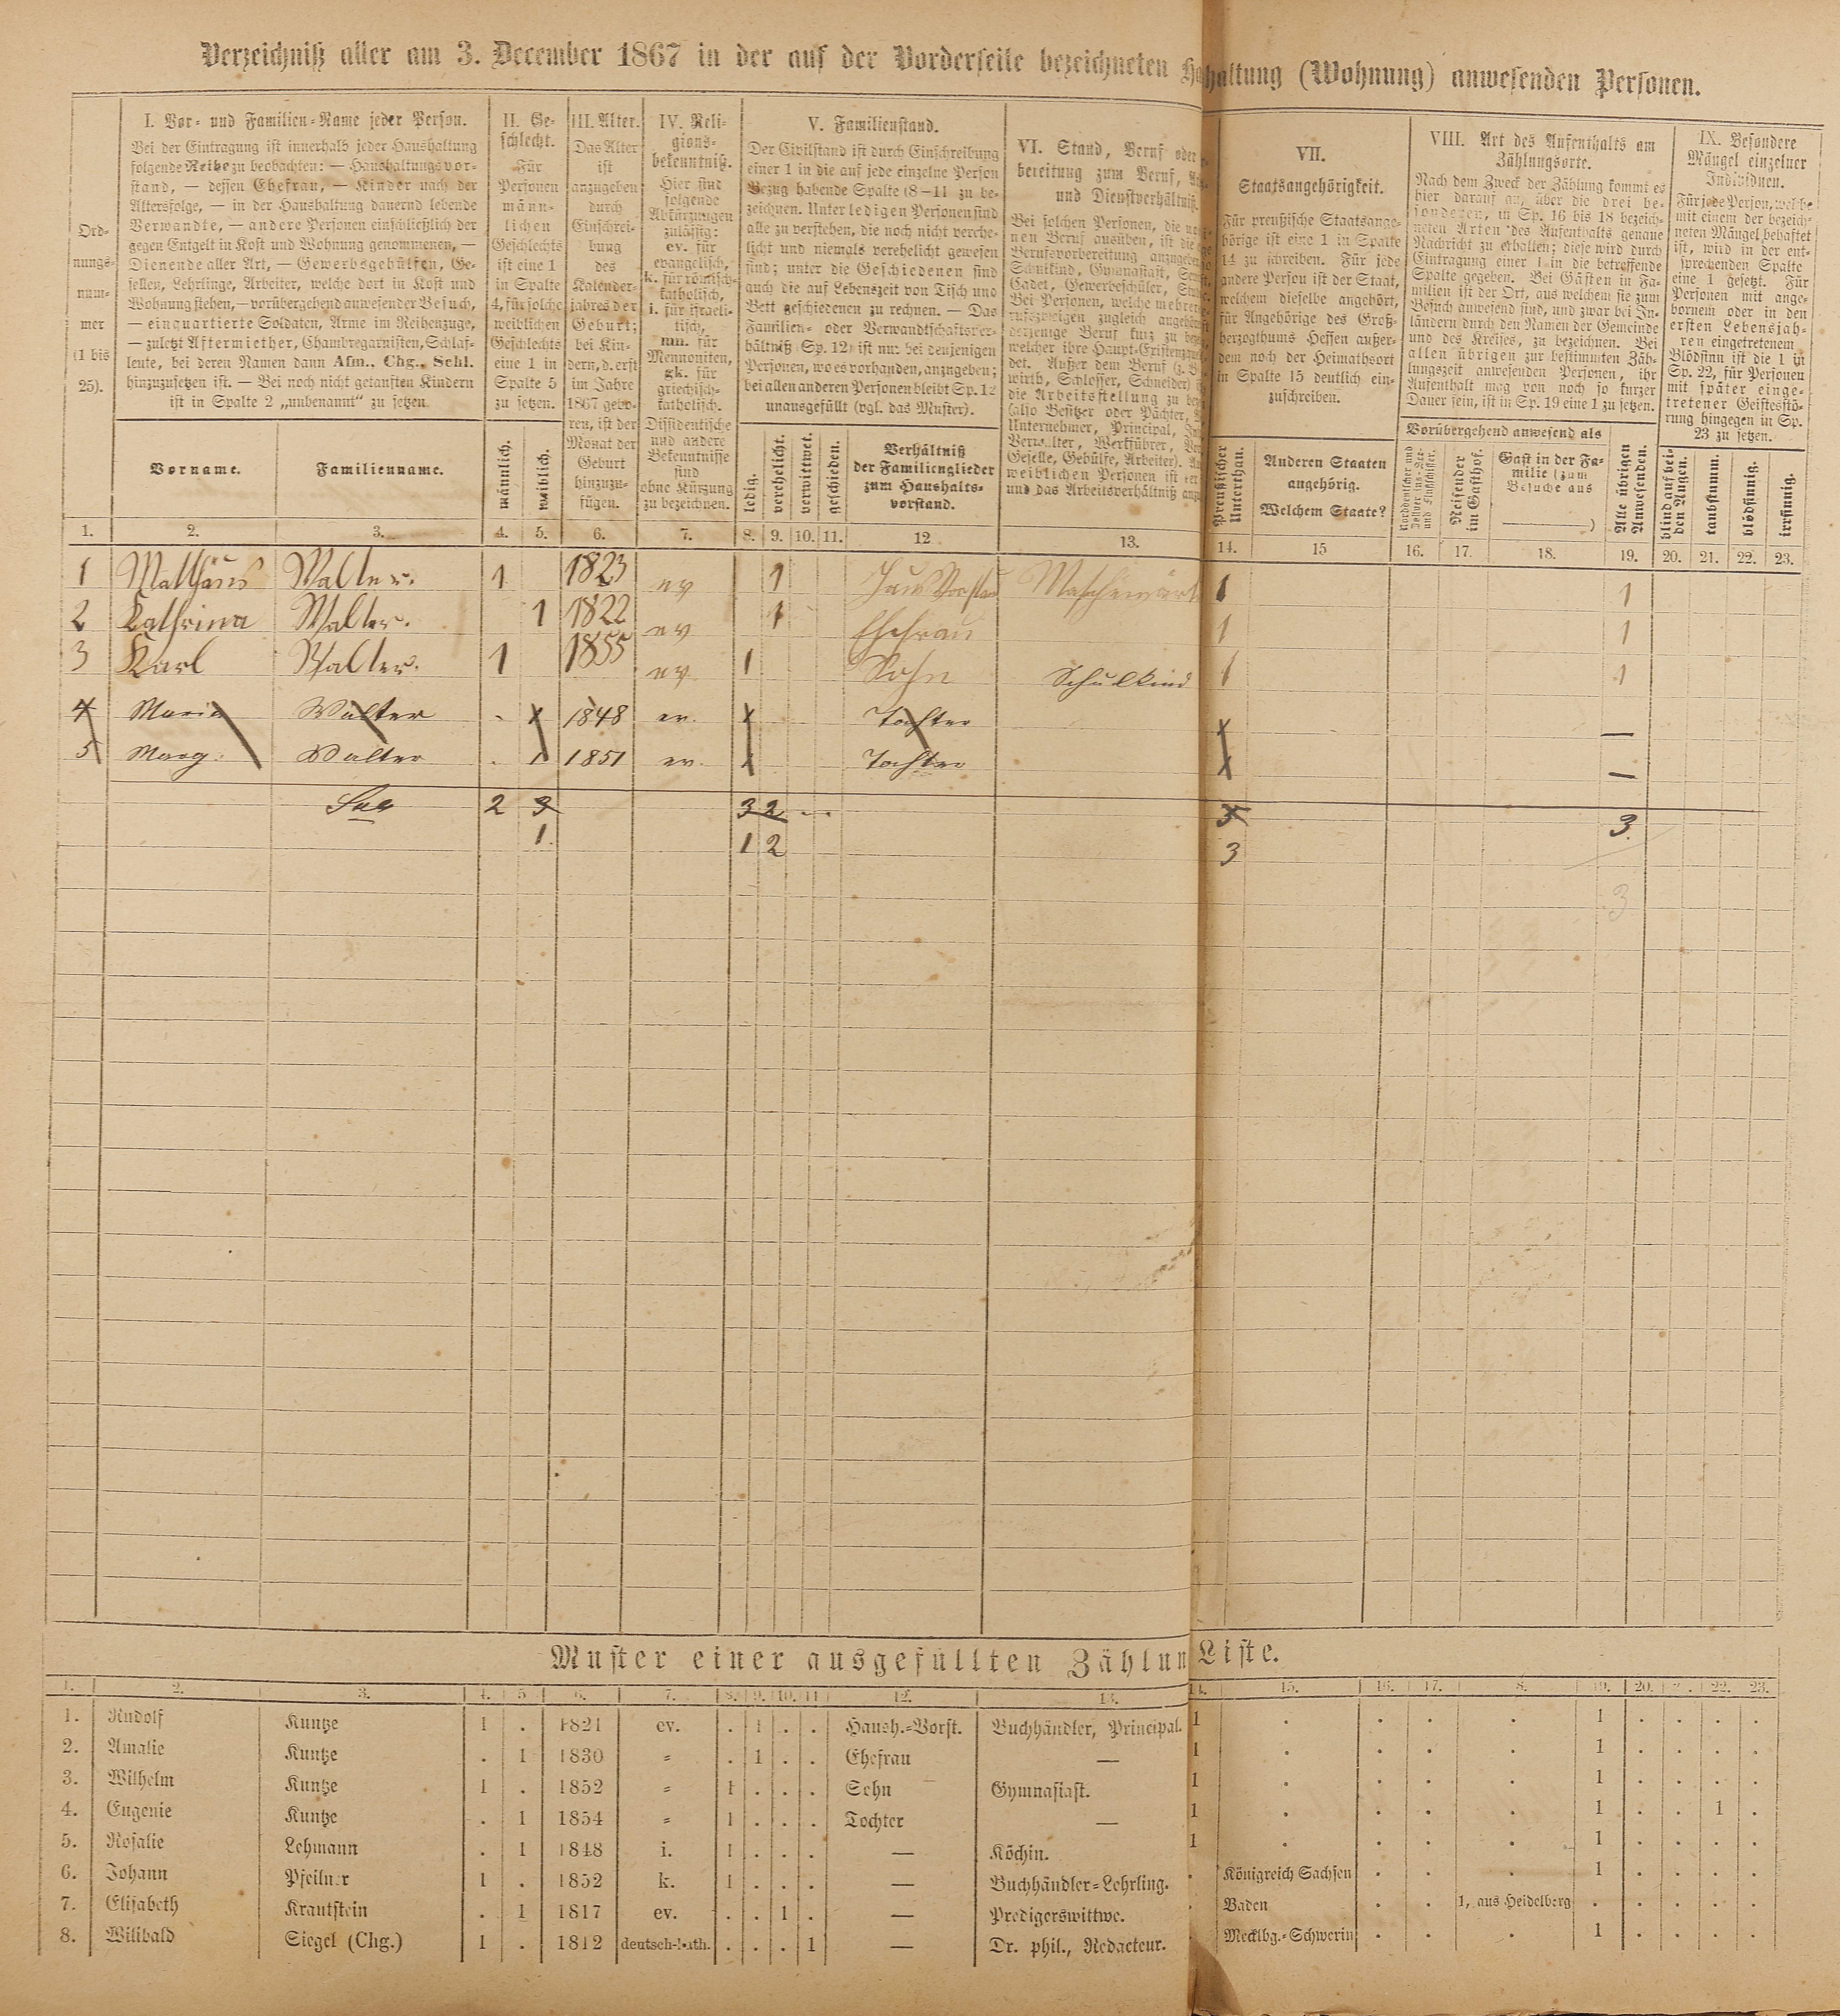 Verzeichniß aller am 3. December 1867 in der auf der Vorderseite bezeichneten haltung (Wohnung) anwesenden Personen.
Ord-
nungs-
num-
mer
(1 bis
25).
I. Vor- und Familien-Name jeder Person.
Bei der Eintragung ist innerhalb jeder Haushaltung
folgende Reihe zu beobachten: — Haushaltungsvor-
stand, — dessen Ehefrau, — Kinder nach der
Altersfolge, — in der Haushaltung dauernd lebende
Verwandte, — andere Personen einschließlich der
gegen Entgelt in Kost und Wohnung genommenen, —
Dienende aller Art, — Gewerbsgehülfen, Ge-
sellen, Lehrlinge, Arbeiter, welche dort in Kost und
Wohnung stehen, — vorübergehend anwesender Besuch,
— einquartierte Soldaten, Arme im Reihenzuge,
— zuletzt Aftermiether, Chambregarnisten, Schlaf-
leute, bei deren Namen dann Afm., Chg., Schl.
hinzuzusetzen ist. — Bei noch nicht getauften Kindern
ist in Spalte 2 „unbenannt“ zu setzen.
Vorname.
Familienname.
II. Ge-
schlecht.
Für
Personen
männ-
lichen
Geschlechts
ist eine 1
in Spalte
4, für solche
weiblichen
Geschlechts
eine 1 in
Spalte 5
zu setzen.
männlich.
weiblich.
III. Alter.
Das Alter
ist
anzugeben
durch
Einschrei-
bung
des
Kalender-
jahres der
Geburt;
bei Kin-
dern, d. erst
im Jahre
1867 gebo-
ren, ist der
Monat der
Geburt
hinzuzu-
fügen.
IV. Reli-
gions-
bekenntniß.
Hier sind
folgende
Abkürzungen
zulässig:
ev. für
evangelisch,
k. für römisch-
katholisch,
i. für israeli-
tisch,
mn. für
Mennoniten,
gk. für
griechisch-
katholisch.
Dissidentische
und andere
Bekenntnisse
sind
ohne Kürzung
zu bezeichnen.
V. Familienstand.
Der Civilstand ist durch Einschreibung
einer 1 in die auf jede einzelne Person
Bezug habende Spalte (8—11 zu be-
zeichnen. Unter ledigen Personen sind
alle zu verstehen, die noch nicht verehe-
licht und niemals verehelicht gewesen
sind; unter die Geschiedenen sind
auch die auf Lebenszeit von Tisch und
Bett geschiedenen zu rechnen. — Das
Familien- oder Verwandtschaftsver-
hältniß (Sp. 12) ist nur bei denjenigen
Personen, wo es vorhanden, anzugeben;
bei allen anderen Personen bleibt Sp. 12
unausgefüllt (vgl. das Muster).
ledig.
verehelicht.
verwittwet.
geschieden.
Verhältniß
der Familienglieder
zum Haushalts-
vorstand.
VI. Stand, Beruf oder
bereitung zum Beruf,
und Dienstverhältniß.
Bei solchen Personen, die
nen Beruf ausüben, ist die
Berufsvorbereitung anzugeben
Schulkind, Gymnasiast,
Cadet, Gewerbeschüler,
Bei Personen, welche mehrere
rufszweigen zugleich angehören
derjenige Beruf kurz zu
welcher ihre Haupt-Existenz
det. Außer dem Beruf (z. B.
wirth, Schlosser, Schneider)
die Arbeitsstellung zu
(also Besitzer oder Pächter,
Unternehmer, Principal,
Verwalter, Werkführer,
Geselle, Gehülfe, Arbeiter).
weiblichen Personen ist
und das Arbeitsverhältniß
VII.
Staatsangehörigkeit.
Für preußische Staatsange-
hörige ist eine 1 in Spalte
14 zu schreiben. Für jede
andere Person ist der Staat,
welchem dieselbe angehört,
für Angehörige des Groß-
herzogthums Hessen außer-
dem noch der Heimathsort
in Spalte 15 deutlich ein-
zuschreiben.
Preußischer
Unterthan.
Anderen Staaten
angehörig.
Welchem Staate?
VIII. Art des Aufenthalts am
Zählungsorte.
Nach dem Zweck der Zählung kommt es
hier darauf an, über die drei be-
sonderen, in Sp. 16 bis 18 bezeich-
neten Arten des Aufenthalts genaue
Nachricht zu erhalten; diese wird durch
Eintragung einer 1 in die betreffende
Spalte gegeben. Bei Gästen in Fa-
milien ist der Ort, aus welchem sie zum
Besuch anwesend sind, und zwar bei In-
ländern durch den Namen der Gemeinde
und des Kreises, zu bezeichnen. Bei
allen übrigen zur bestimmten Zäh-
lungszeit anwesenden Personen, ihr
Aufenthalt mag von noch so kurzer
Dauer sein, ist in Sp. 19 eine 1 zu setzen.
Vorübergehend anwesend als
Reisender
im Gasthof.
Gast in der Fa-
milie (zum
Besuche aus
)
Alle übrigen
Anwesenden.
IX. Besondere
Mängel einzelner
Individuen.
Für jede Person, welche
mit einem der bezeich-
neten Mängel behaftet
ist, wird in der ent-
sprechenden Spalte
eine 1 gesetzt. Für
Personen mit ange-
bornem oder in den
ersten Lebensjah-
ren eingetretenem
Blödsinn ist die 1 in
Sp. 22, für Personen
mit später einge-
tretener Geistesstö-
rung hingegen in Sp.
23 zu setzen.
blind auf bei-
den Augen.
taubstumm.
blödsinnig.
irrsinnig.
1. 2. 3. 4. 5. 6. 7. 8. 9. 10. 11. 12 13. 14. 15 16. 17. 18. 19. 20. 21. 22. 23.
1 Matthäus Walter. 1 1823 ev 1 Maschinwärt 1 1
2 Kathrina Walter. 1 1822 ev 1 Ehefrau 1 1
3 Karl Walter. 1 1855 ev 1 Sohn Schulkind 1 1
4 Maria Walter - 1 1848 ev. 1 Tochter 1 —
5 Marg. Walter . 1 1851 ev. 1 Tochter 1 —
2 3 3 2 - - 5 3.
1. 1 2 3
3
Muster einer ausgefüllten Zählun Liste.
1. 2. 3. 4. 5 6. 7. 8. 9. 10. 11 12. 13. 14. 15. 16. 17. 8. 19. 20. 22. 23.
1. Rudolf Kuntze 1 . 1821 ev. . 1 . . Haush.-Vorst. Buchhändler, Principal. 1 . . . . 1 . . . .
2. Amalie Kuntze . 1 1830 = . 1 . . Ehefrau — 1 . . . . 1 . . . .
3. Wilhelm Kuntze 1 . 1852 = 1 . . . Sohn Gymnasiast. 1 . . . . 1 . . . .
4. Eugenie Kuntze . 1 1854 = 1 . . . Tochter — 1 . . . . 1 . . 1 .
5. Rosalie Lehmann . 1 1848 i. 1 . . . — Köchin. 1 . . . . 1 . . . .
6. Johann Pfeilner 1 . 1852 k. 1 . . . — Buchhändler-Lehrling. . Königreich Sachsen . . . 1 . . . .
7. Elisabeth Krautstein . 1 1817 ev. . . 1 . — Predigerswittwe. . Baden . . 1, aus Heidelberg . . . . .
8. Wilibald Siegel (Chg.) 1 . 1812 deutsch-kath. . . . 1 — Dr. phil., Redacteur. . Mecklbg.-Schwerin . . . 1 . . . .